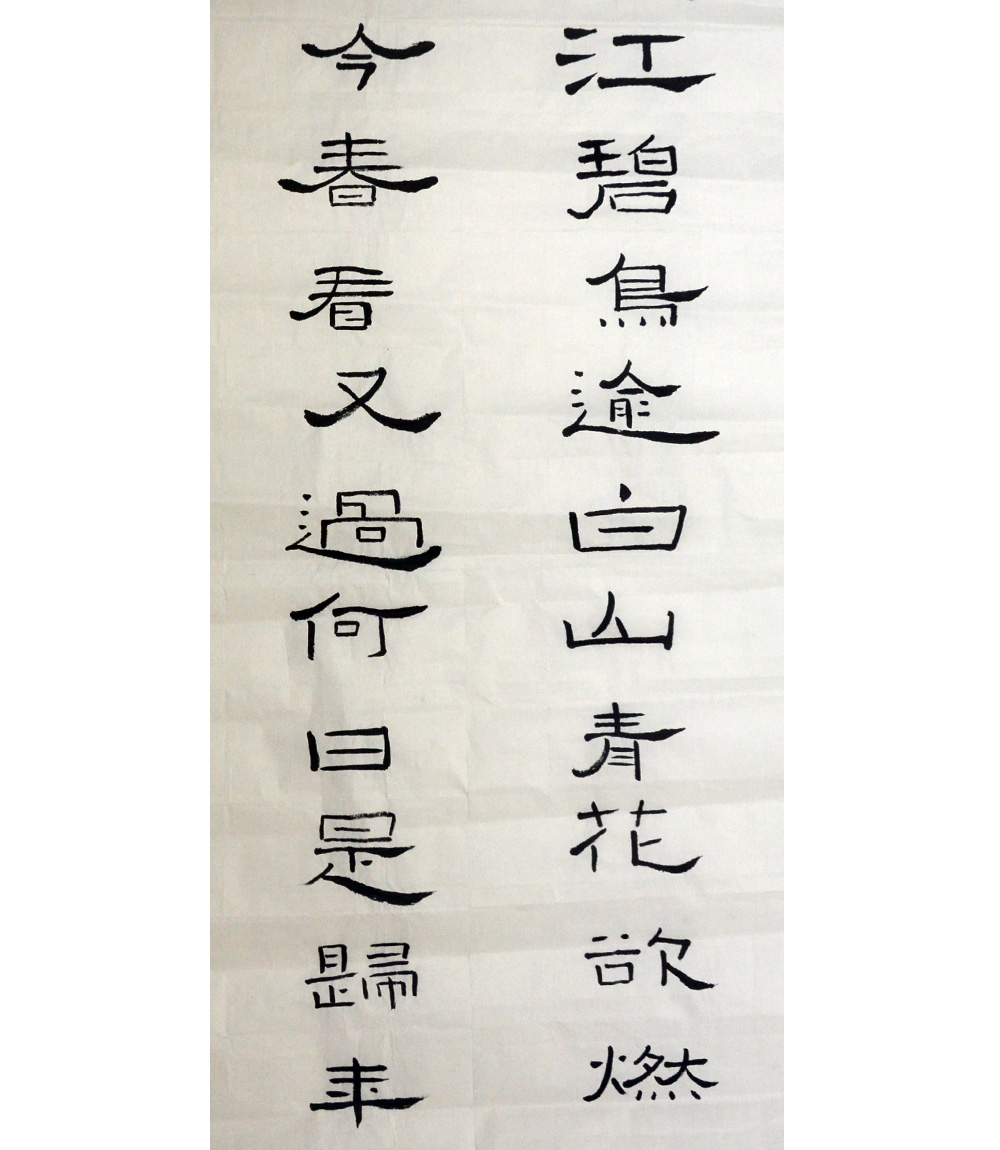 江碧鳥逾白山青花欲燃
今春看又過何日是歸年